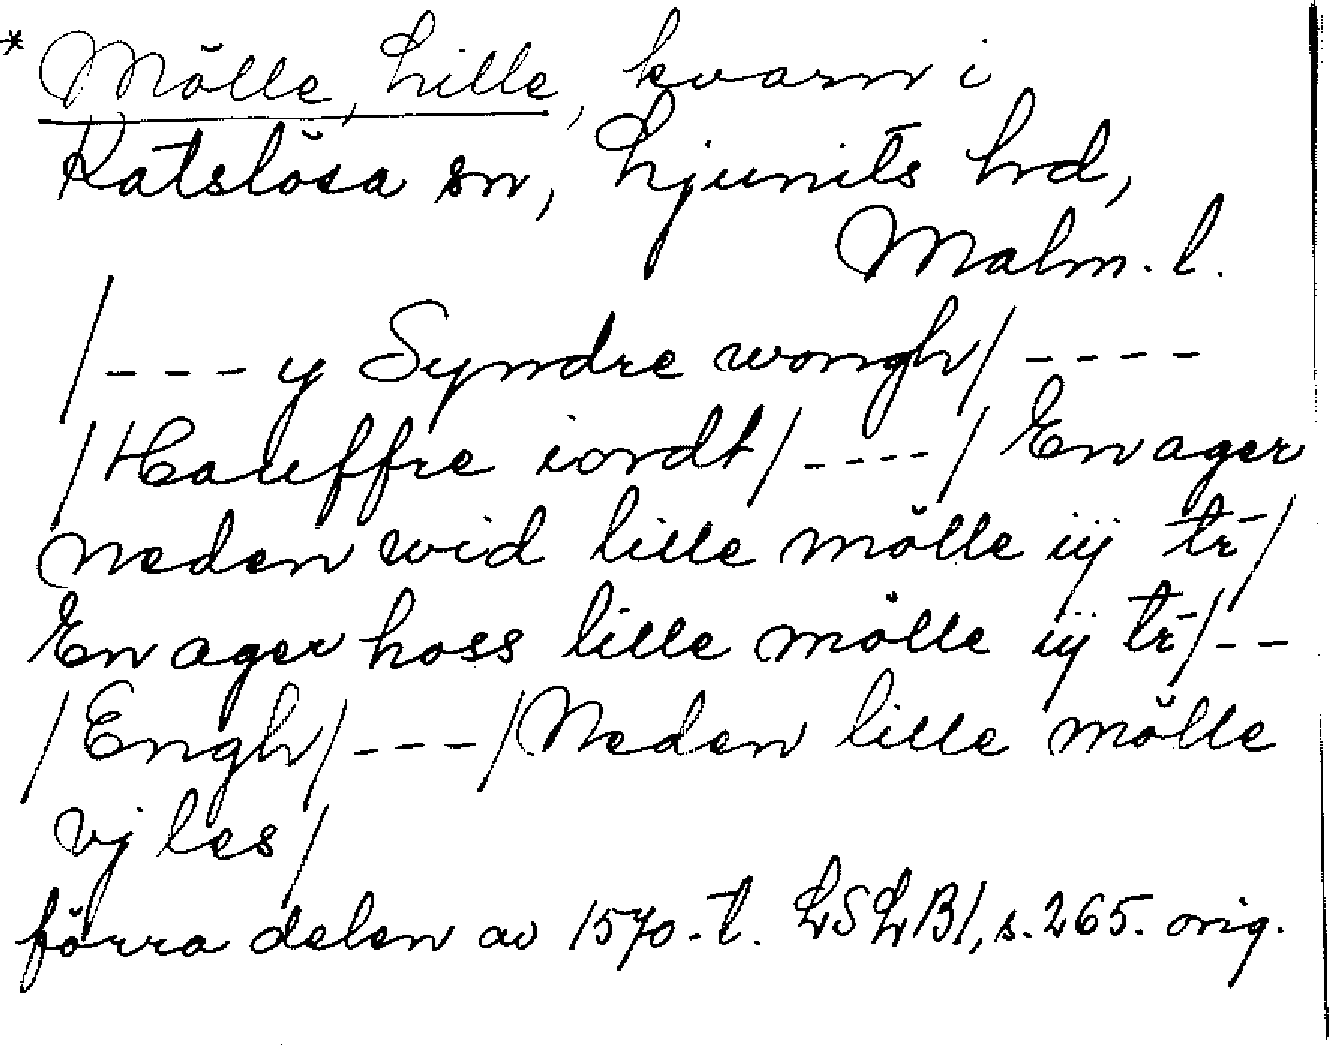 * Mölle, Lille, kvarn i
Katslösa sn, Ljunits hd,
Malm. l.
/---y Syndre wongh/----
/Hauffre iordt/----/En ager
neden wid lille mölle iij tr/
En ager hoss lille mölle iij tr/--
/Engh/---/Neden lille mölle
vj les/
förra delen av 1570-t. LSLB1, s. 265. orig.